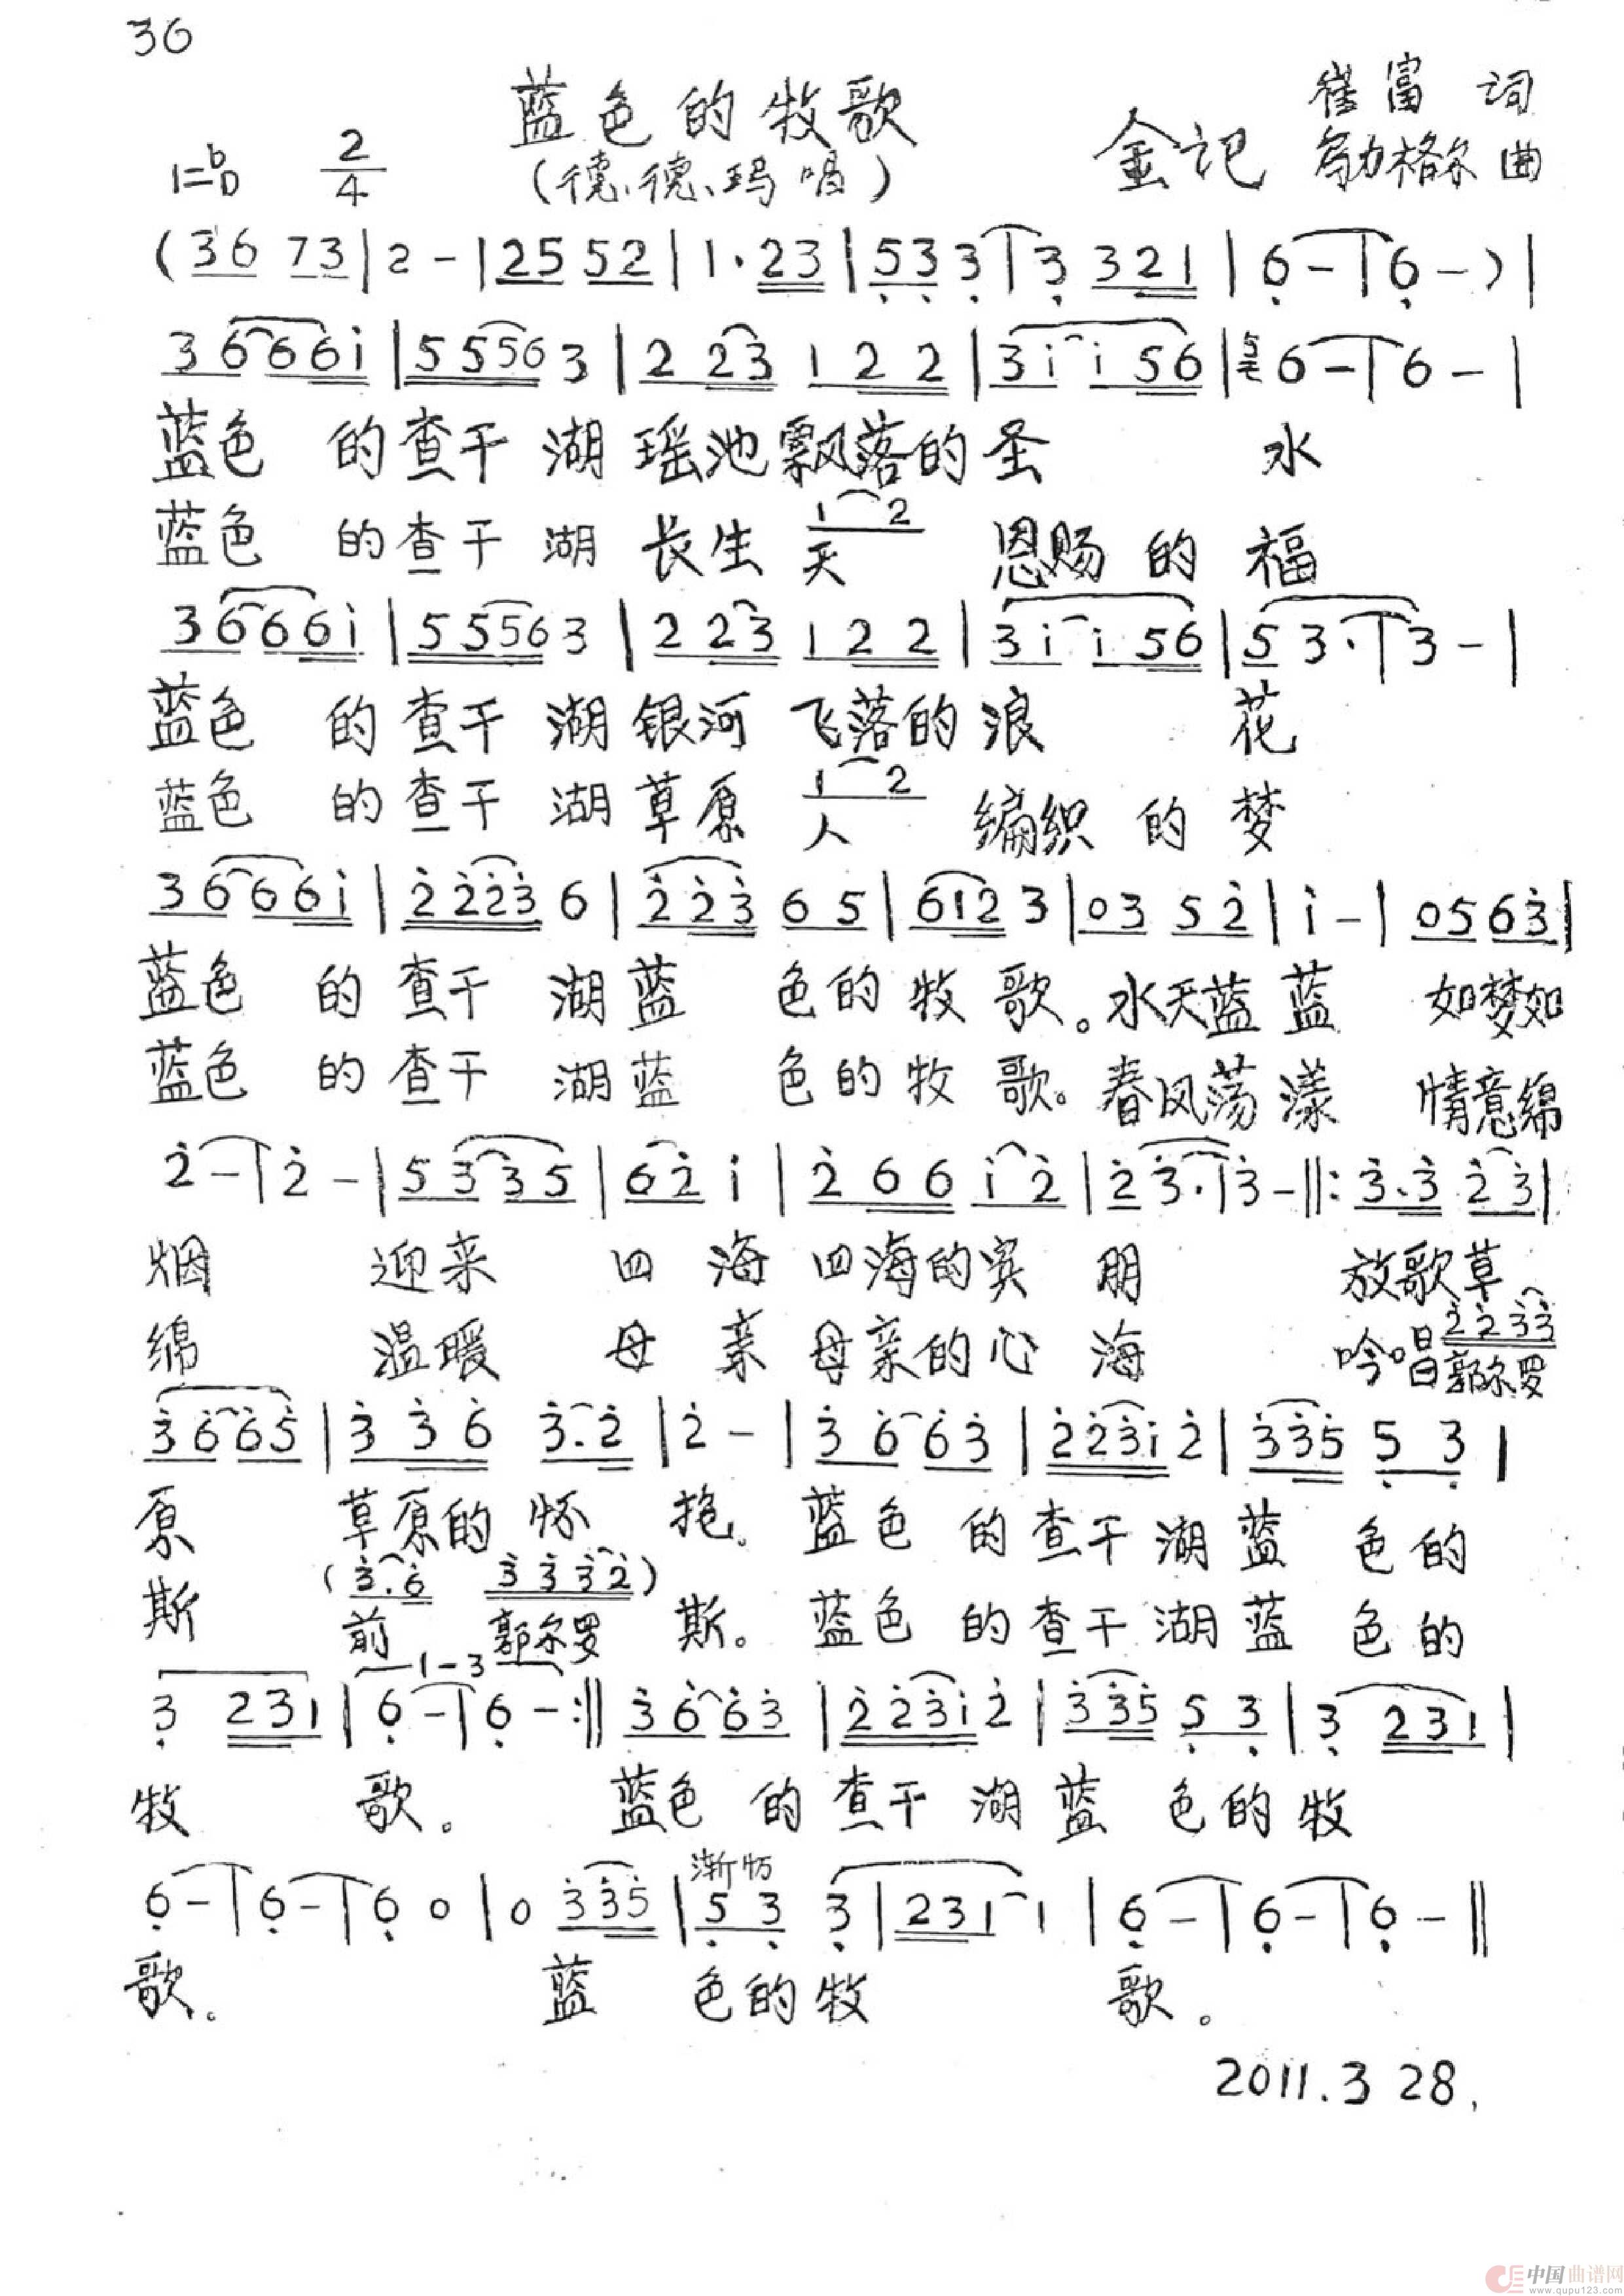 36
蓝色的牧歌
崔富 词
1=bD 2/4 (德、德、玛唱) 金记 乌力格尔 曲
(36 73|2 -|25 52|1·23|533|3 321|6 -|6 -)|
3666i|55563|223 122|3ii56|6 -|6 -|
蓝色 的查干湖瑶池飘落的圣 水
1 2
蓝色 的查干湖长生天 恩赐的福
3666i|55563|223 122|3ii56|53·|3 -|
蓝色 的查干湖银河飞落的浪 花
1 2
蓝色 的查干湖草原人 编织的梦
3666i|22236|223 65|6123|03 52|i -|05 63|
蓝色 的查干湖蓝 色的牧歌。水天蓝蓝 如梦如
蓝色 的查干湖蓝 色的牧歌。春风荡漾 情意绵
2 -|2 -|5335|62 i|266 i2|23·|3 -‖:3·3 23|
烟 迎来四海四海的宾朋 放歌草
2233
绵 温暖母亲母亲的心海 吟唱郭尔罗
3665|336 3·2|2 -|3663|223i2|335 53|
原 草原的怀抱。蓝色的查干湖蓝 色的
(3·6 3332)
斯 前郭尔罗斯。蓝色的查干湖蓝 色的
1-3
3 231|6 -|6 -:‖3663|223i2|335 53|3 231|
牧 歌。 蓝色的查干湖蓝 色的牧
渐慢
6 -|6 -|6 0|0 335|53 3|231 1|6 -|6 -|6 -‖
歌。 蓝 色的牧 歌。
2011.3 28.
中国曲谱网
www.qupu123.com